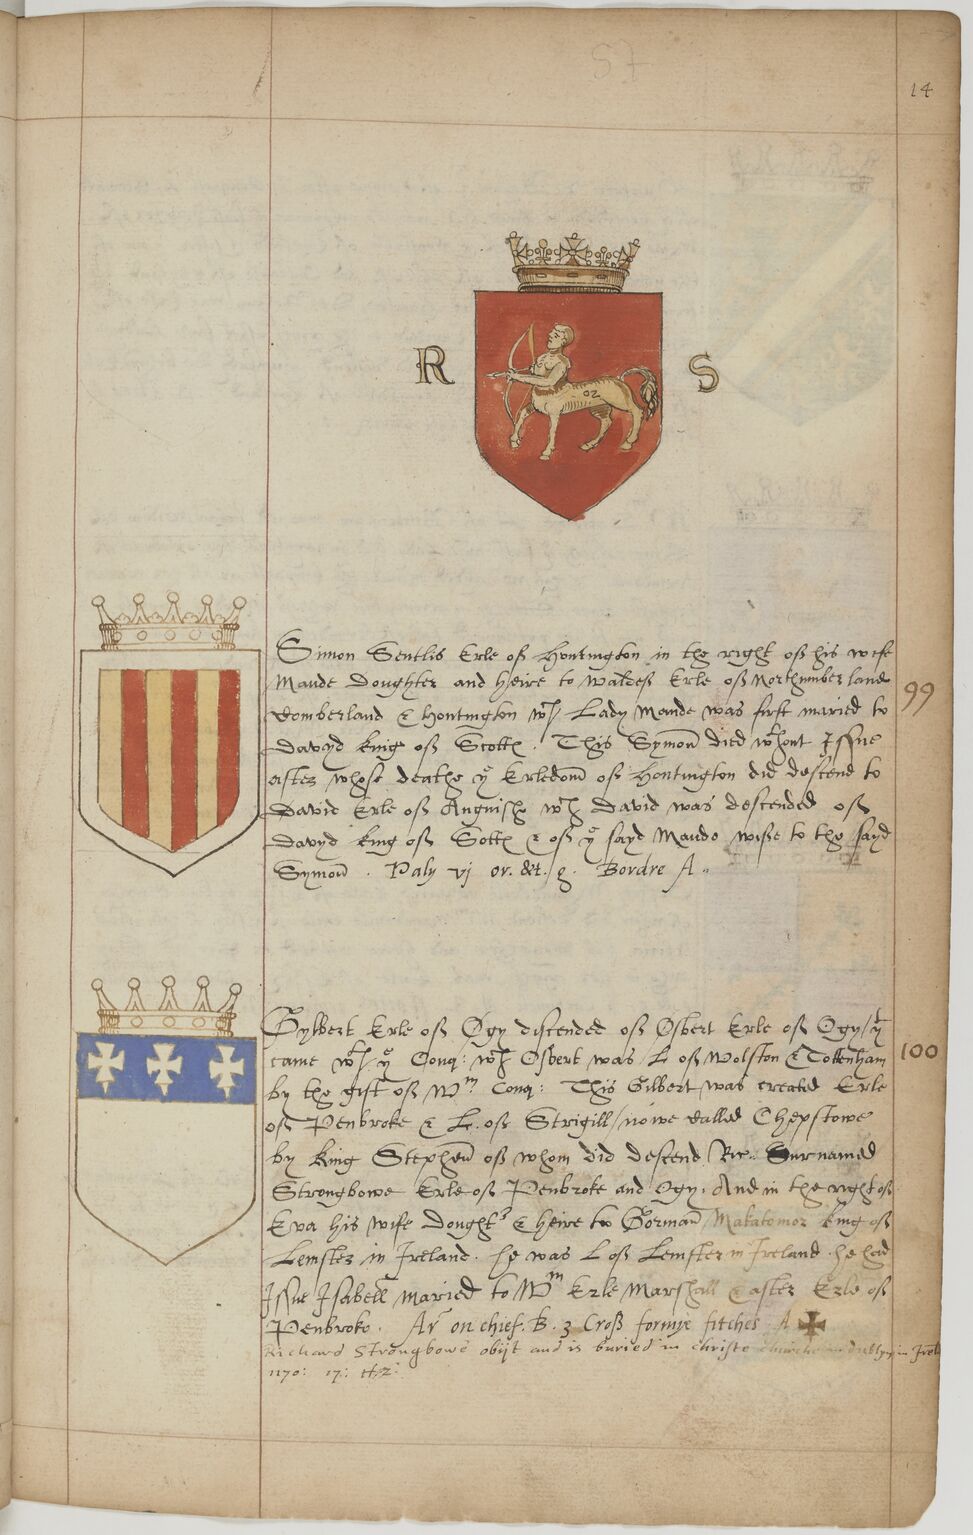 14
R S
Simon Sentlis Erle off Hontington in the right off his wife
Maude Doughter and heire to Waldeff Erle off Northumberland
Comberland & Hontington wch Lady Maude was first maried to
Davyd king off Scotts . This Symon died wthout Issue
after whose deathe ye Erledom off Hontington did descend to
David Erle off Anguishe wch David was descended off
Davyd king off Scotts & off ye sayd Maude wiffe to the sayd
Symon . Paly vj or. et. g. Bordre A.
99
Gylbert Erle off Ogy discended off Osbert Erle off Ogy / yt
came wth ye Conq: wch Osbert was L off Wolston & Tottenham
by the gift off Wm Conq: This Gilbert was created Erle
off Penbroke & L. off Strigill / nowe called Chepstowe
by King Stephen off whom did descend Ric. Surnamed
Strongbowe Erle off Penbroke and Ogy. And in the right off
Eva his wife dought & heire to Dorman Makatomor king off
Lemster in Ireland. he was L off Lemster in Ireland. he had
Issue Isabell maried to Wm Erle Marshall & after Erle off
Penbroke. Ar on chief. B. 3 Cross formye fitches A
Richard Strongbowe obijt and is buried in christe churche in dublyn in Irel
1170: 17: H: 2:
100